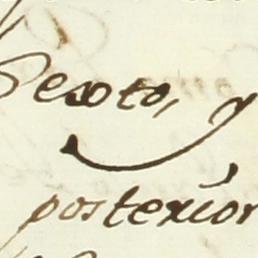 Sexto, y
posterior